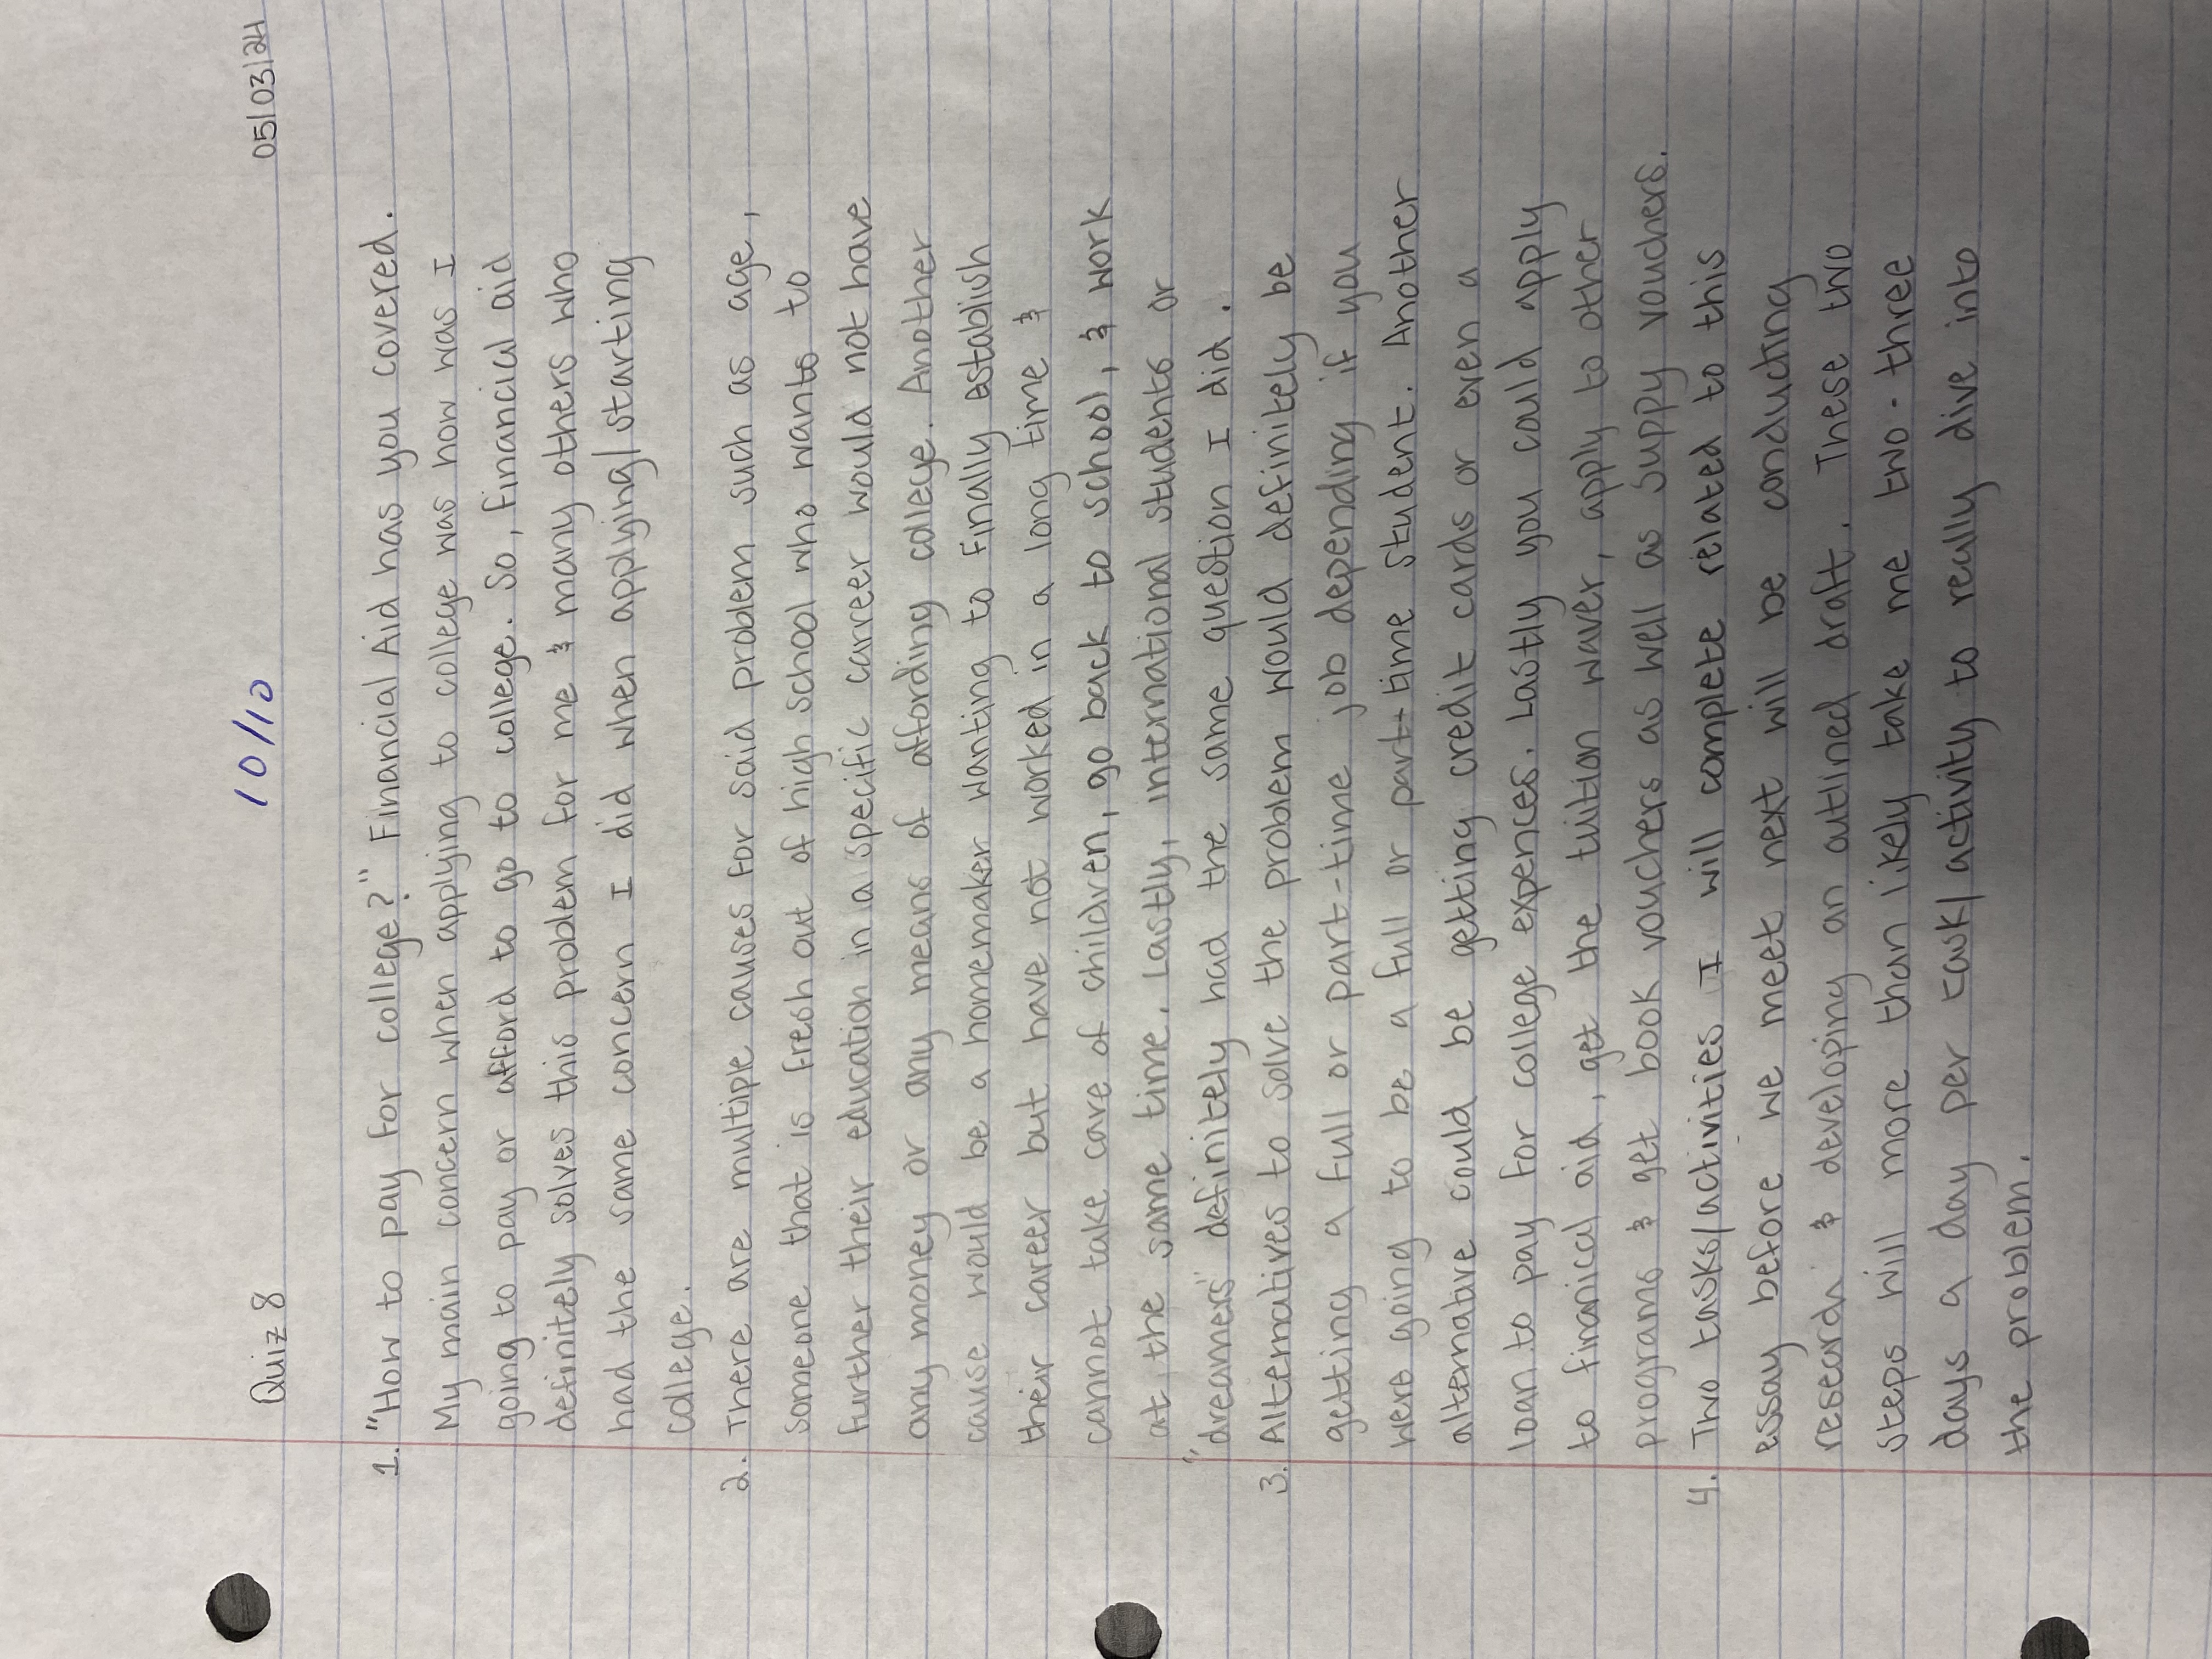 10/10
Quiz 8 05/03/24
1. "How to pay for college?" Financial Aid has you covered.
My main concern when applying to college was how was I
going to pay or afford to go to college. So, financial aid
definitely solves this problem for me & many others who
had the same concern I did when applying/starting
college.
2. There are multiple causes for said problem such as age,
someone that is fresh out of high school who wants to
further their education in a specific carreer would not have
any money or any means of affording college. Another
cause would be a homemaker wanting to finally establish
their career but have not worked in a long time &
cannot take care of children, go back to school, & work
at the same time. Lastly, international students or
"dreamers" definitely had the same question I did.
3. Alternatives to solve the problem would definitely be
getting a full or part-time job depending if you
were going to be a full or part time student. Another
alternative could be getting credit cards or even a
loan to pay for college expences. Lastly you could apply
to finanical aid, get the tuition waver, apply to other
programs & get book vouchers as well as suppy vouchers.
4. Two tasks/activities I will complete related to this
essay before we meet next will be conducting
research & developing an outlined draft. These two
steps will more than likely take me two-three
days a day per task/activity to really dive into
the problem.